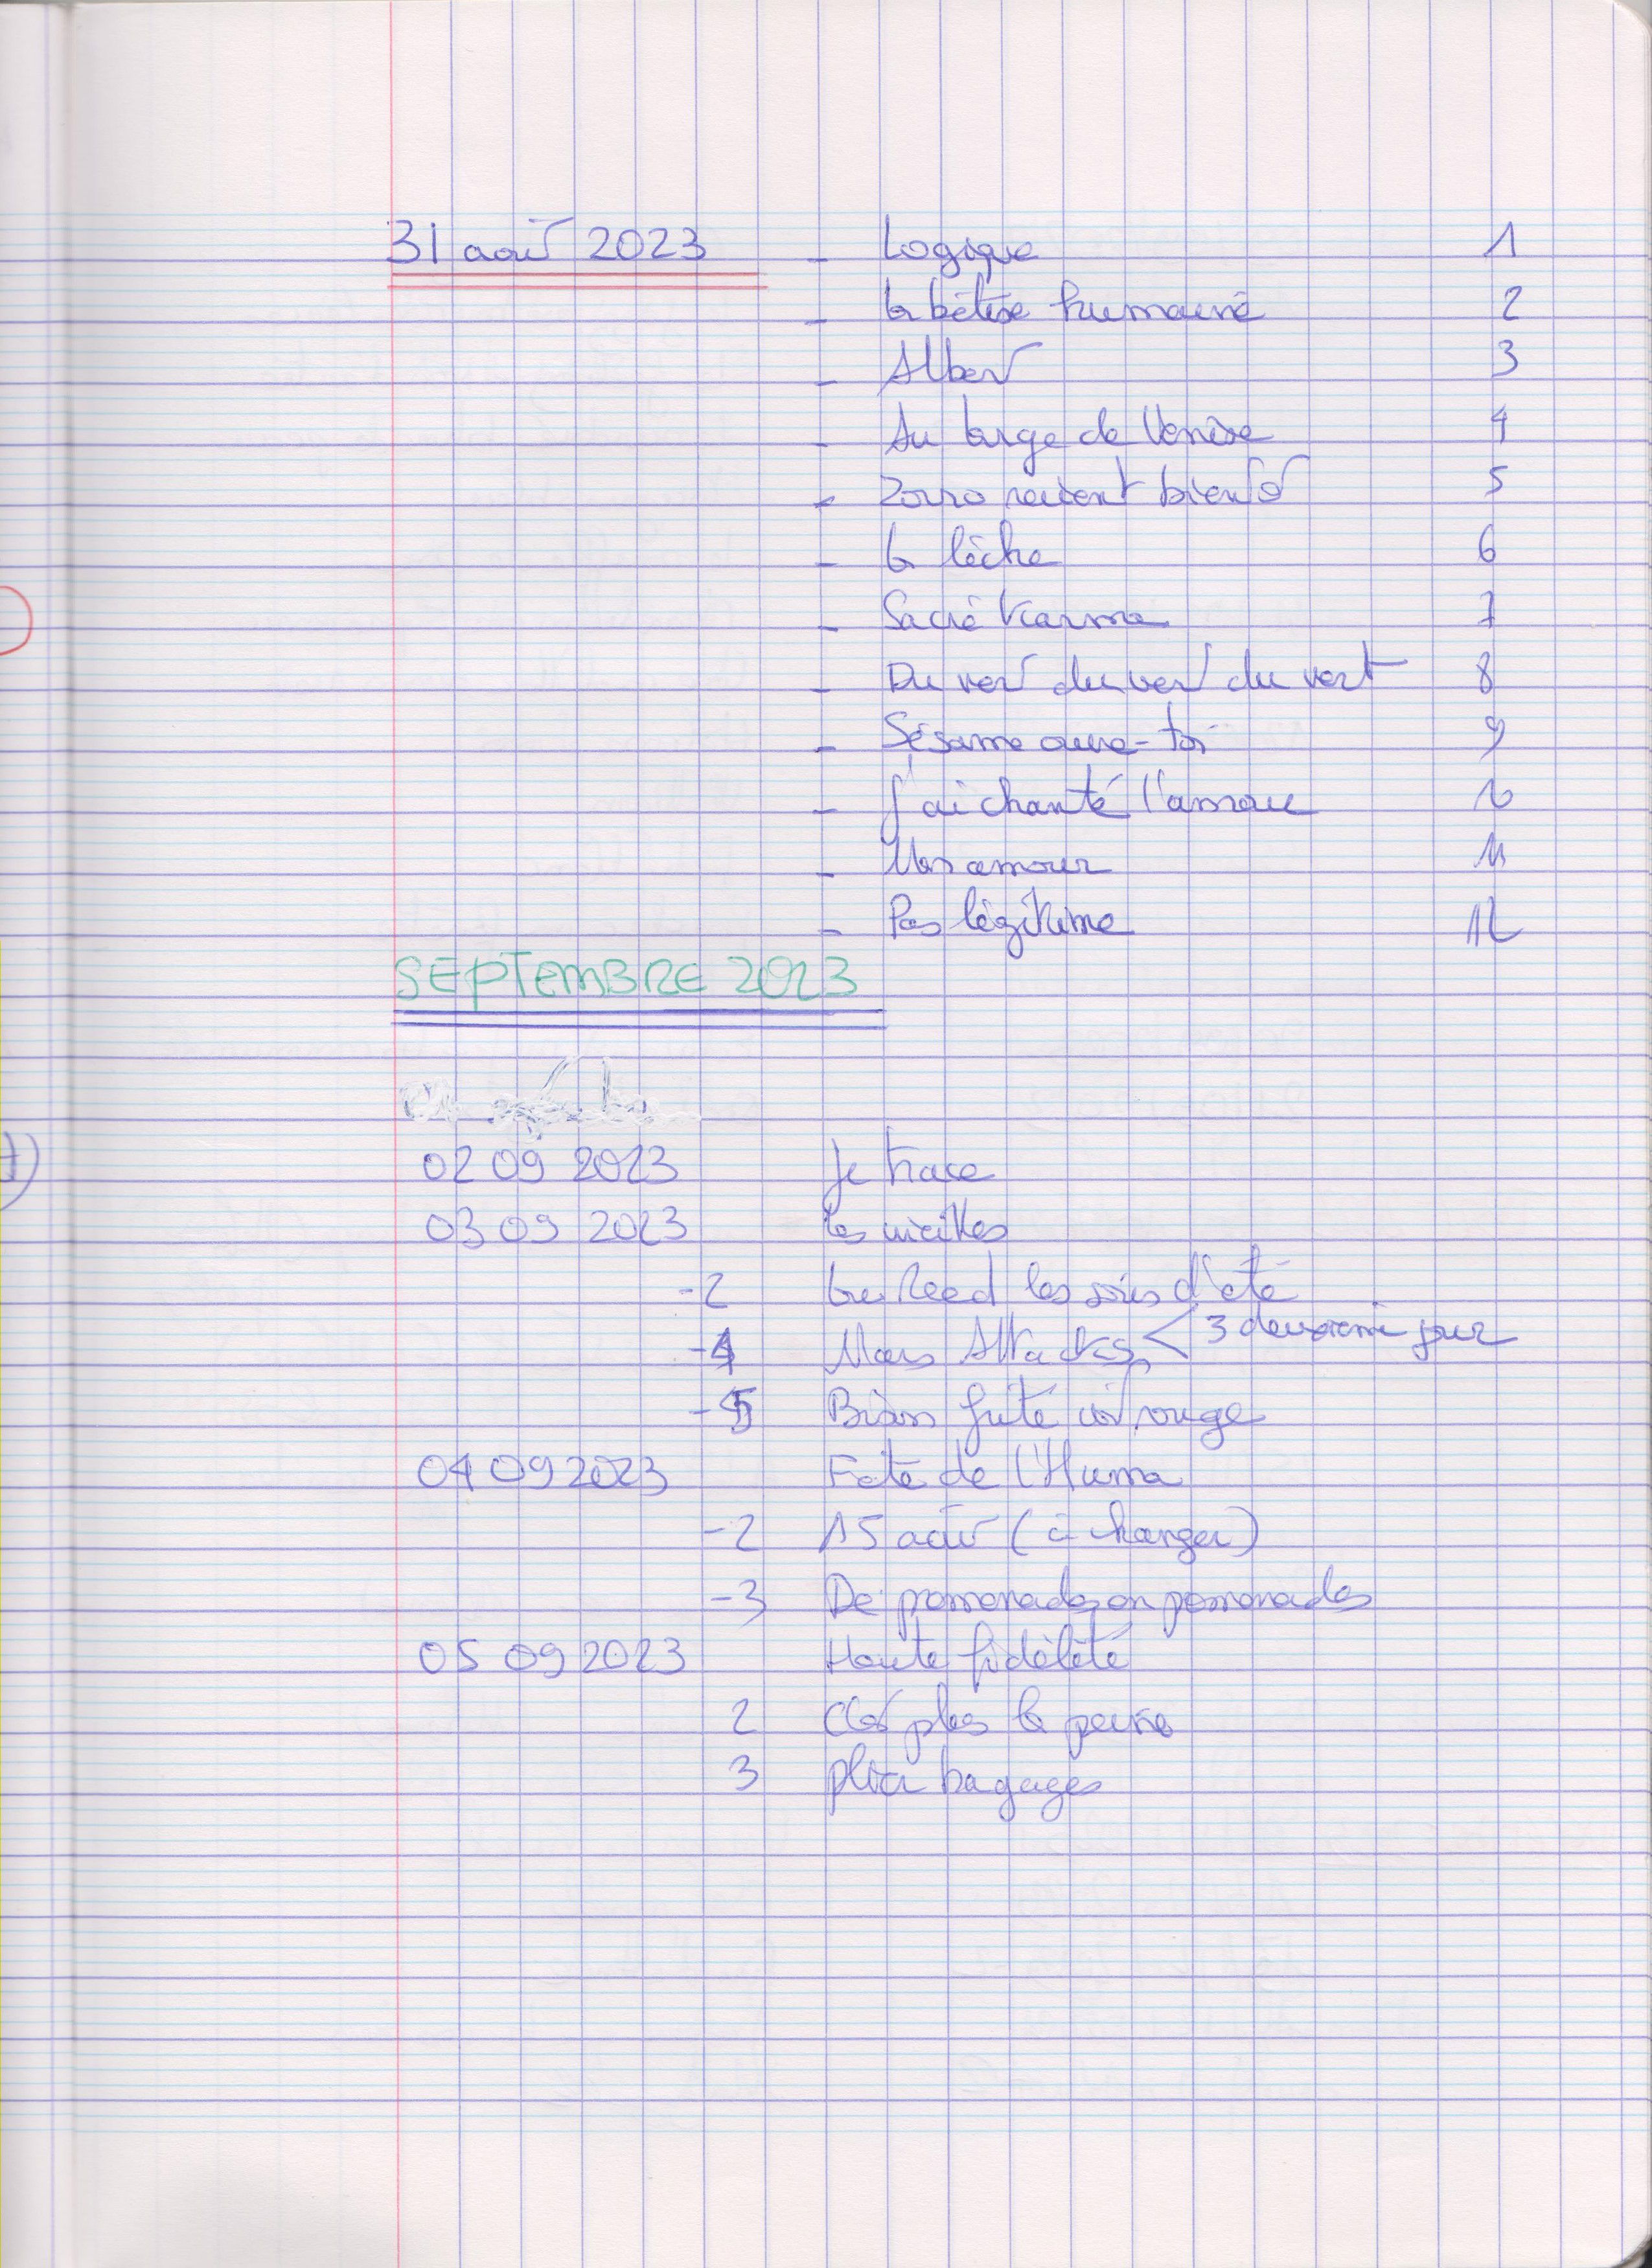 31 août 2023 - Logique 1
- la bêtise humaine 2
- Albert 3
- Au large de Venise 4
- Zorro revient bientôt 5
- la lèche 6
- Sacré Karma 7
- Du ver du ver du vert 8
- Sésame ouvre-toi 9
- J'ai chanté l'amour 10
- Mon amour 11
- Pas légitime 12
SEPTEMBRE 2023
02 09 2023 Je trace
03 09 2023 les vieilles
-2 Lou Reed les soirs d'été
-4 Mars Attacks < 3 deuxième jour
-5 Bison futé voit rouge
04 09 2023 Fête de l'Huma
-2 15 août (à changer)
-3 De promenades en promenades
05 09 2023 Haute fidélité
2 C'est plus la peine
3 plier bagages